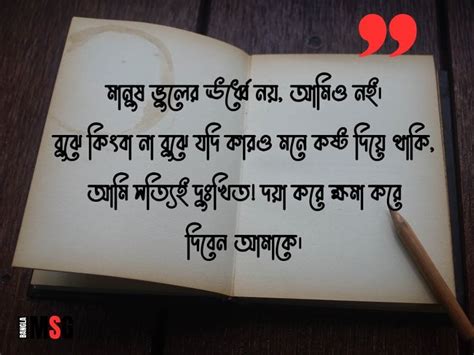 মানুষ ভুলের ঊর্ধ্বে নয়, আমিও নই।
বুঝে কিংবা না বুঝে যদি কারও মনে কষ্ট দিয়ে থাকি,
আমি সত্যিই দুঃখিত! দয়া করে ক্ষমা করে
দিবেন আমাকে।
BANGLA MSG